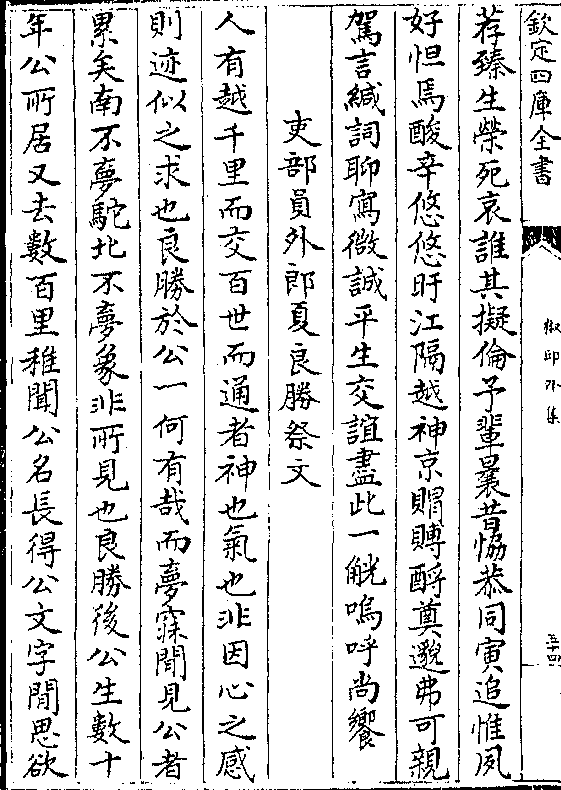 欽定四庫全書
椒邱外集
五十四
荐臻生榮死哀誰其擬倫予輩曩昔恊恭同寅追惟夙
好怛焉酸辛悠悠旴江隔越神京賵賻酹奠邈弗可親
駕言緘詞聊寫微誠平生交誼盡此一觥嗚呼尚饗
吏部員外郎夏良勝祭文
人有越千里而交百世而通者神也氣也非因心之感
則迹似之求也良勝於公一何有哉而夢寐聞見公者
累矣南不夢駝北不夢象非所見也良勝後公生數十
年公所居又去數百里稚聞公名長得公文字閒思欲